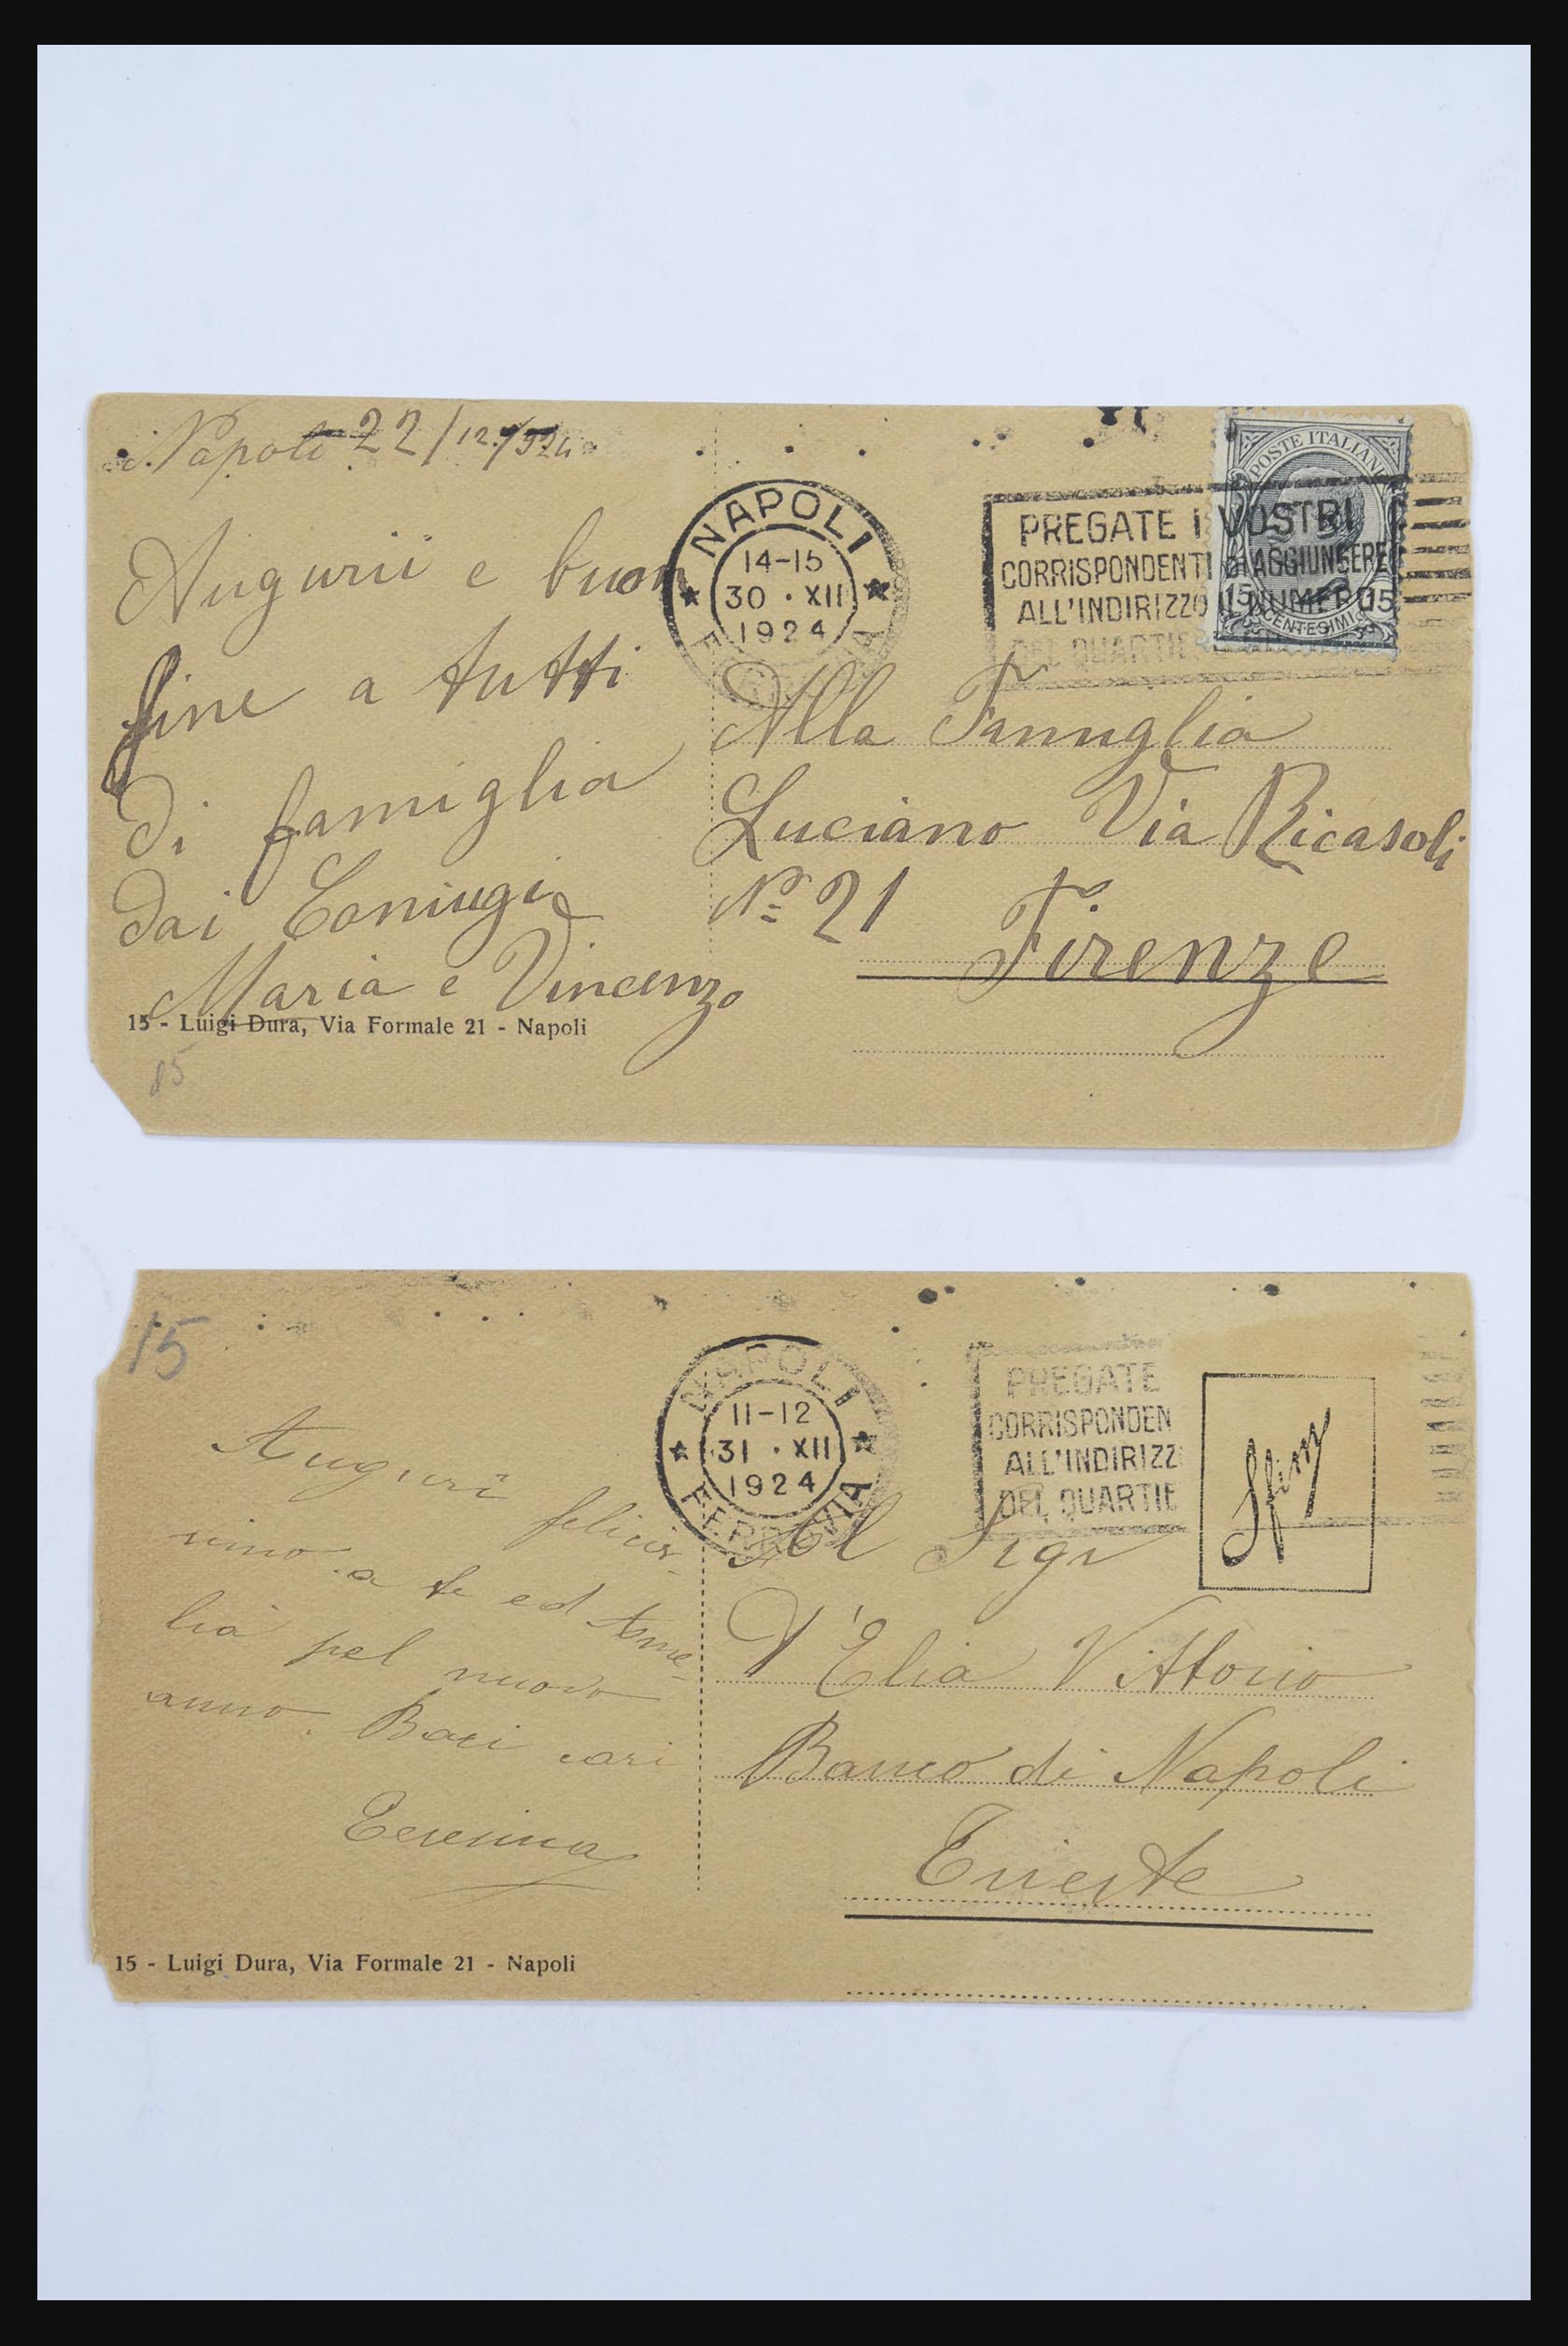 Napoli 22/12/924
Augurii e buon
fine a tutti
di famiglia
dai Coniugi
Maria e Vincenzo
15 - Luigi Dura, Via Formale 21 - Napoli
15
NAPOLI
14-15
30 · XII
1924
PREGATE I VOSTRI
CORRISPONDENTI DI AGGIUNGERE
ALL'INDIRIZZO IL NUMERO
DEL QUARTIERE
POSTE ITALIANE
15 15
CENTESIMI
Alla Famiglia
Luciano Via Ricasoli
No 21 Firenze
15
Auguri felicis-
simo a te ed Ame-
lia pel nuovo
anno. Baci cari
Teresina
15 - Luigi Dura, Via Formale 21 - Napoli
NAPOLI
11-12
31 · XII
1924
FERROVIA
PREGATE
CORRISPONDEN
ALL'INDIRIZZ
DEL QUARTIE
Al Sigr
D'Elia Vittorio
Banco di Napoli
Trieste